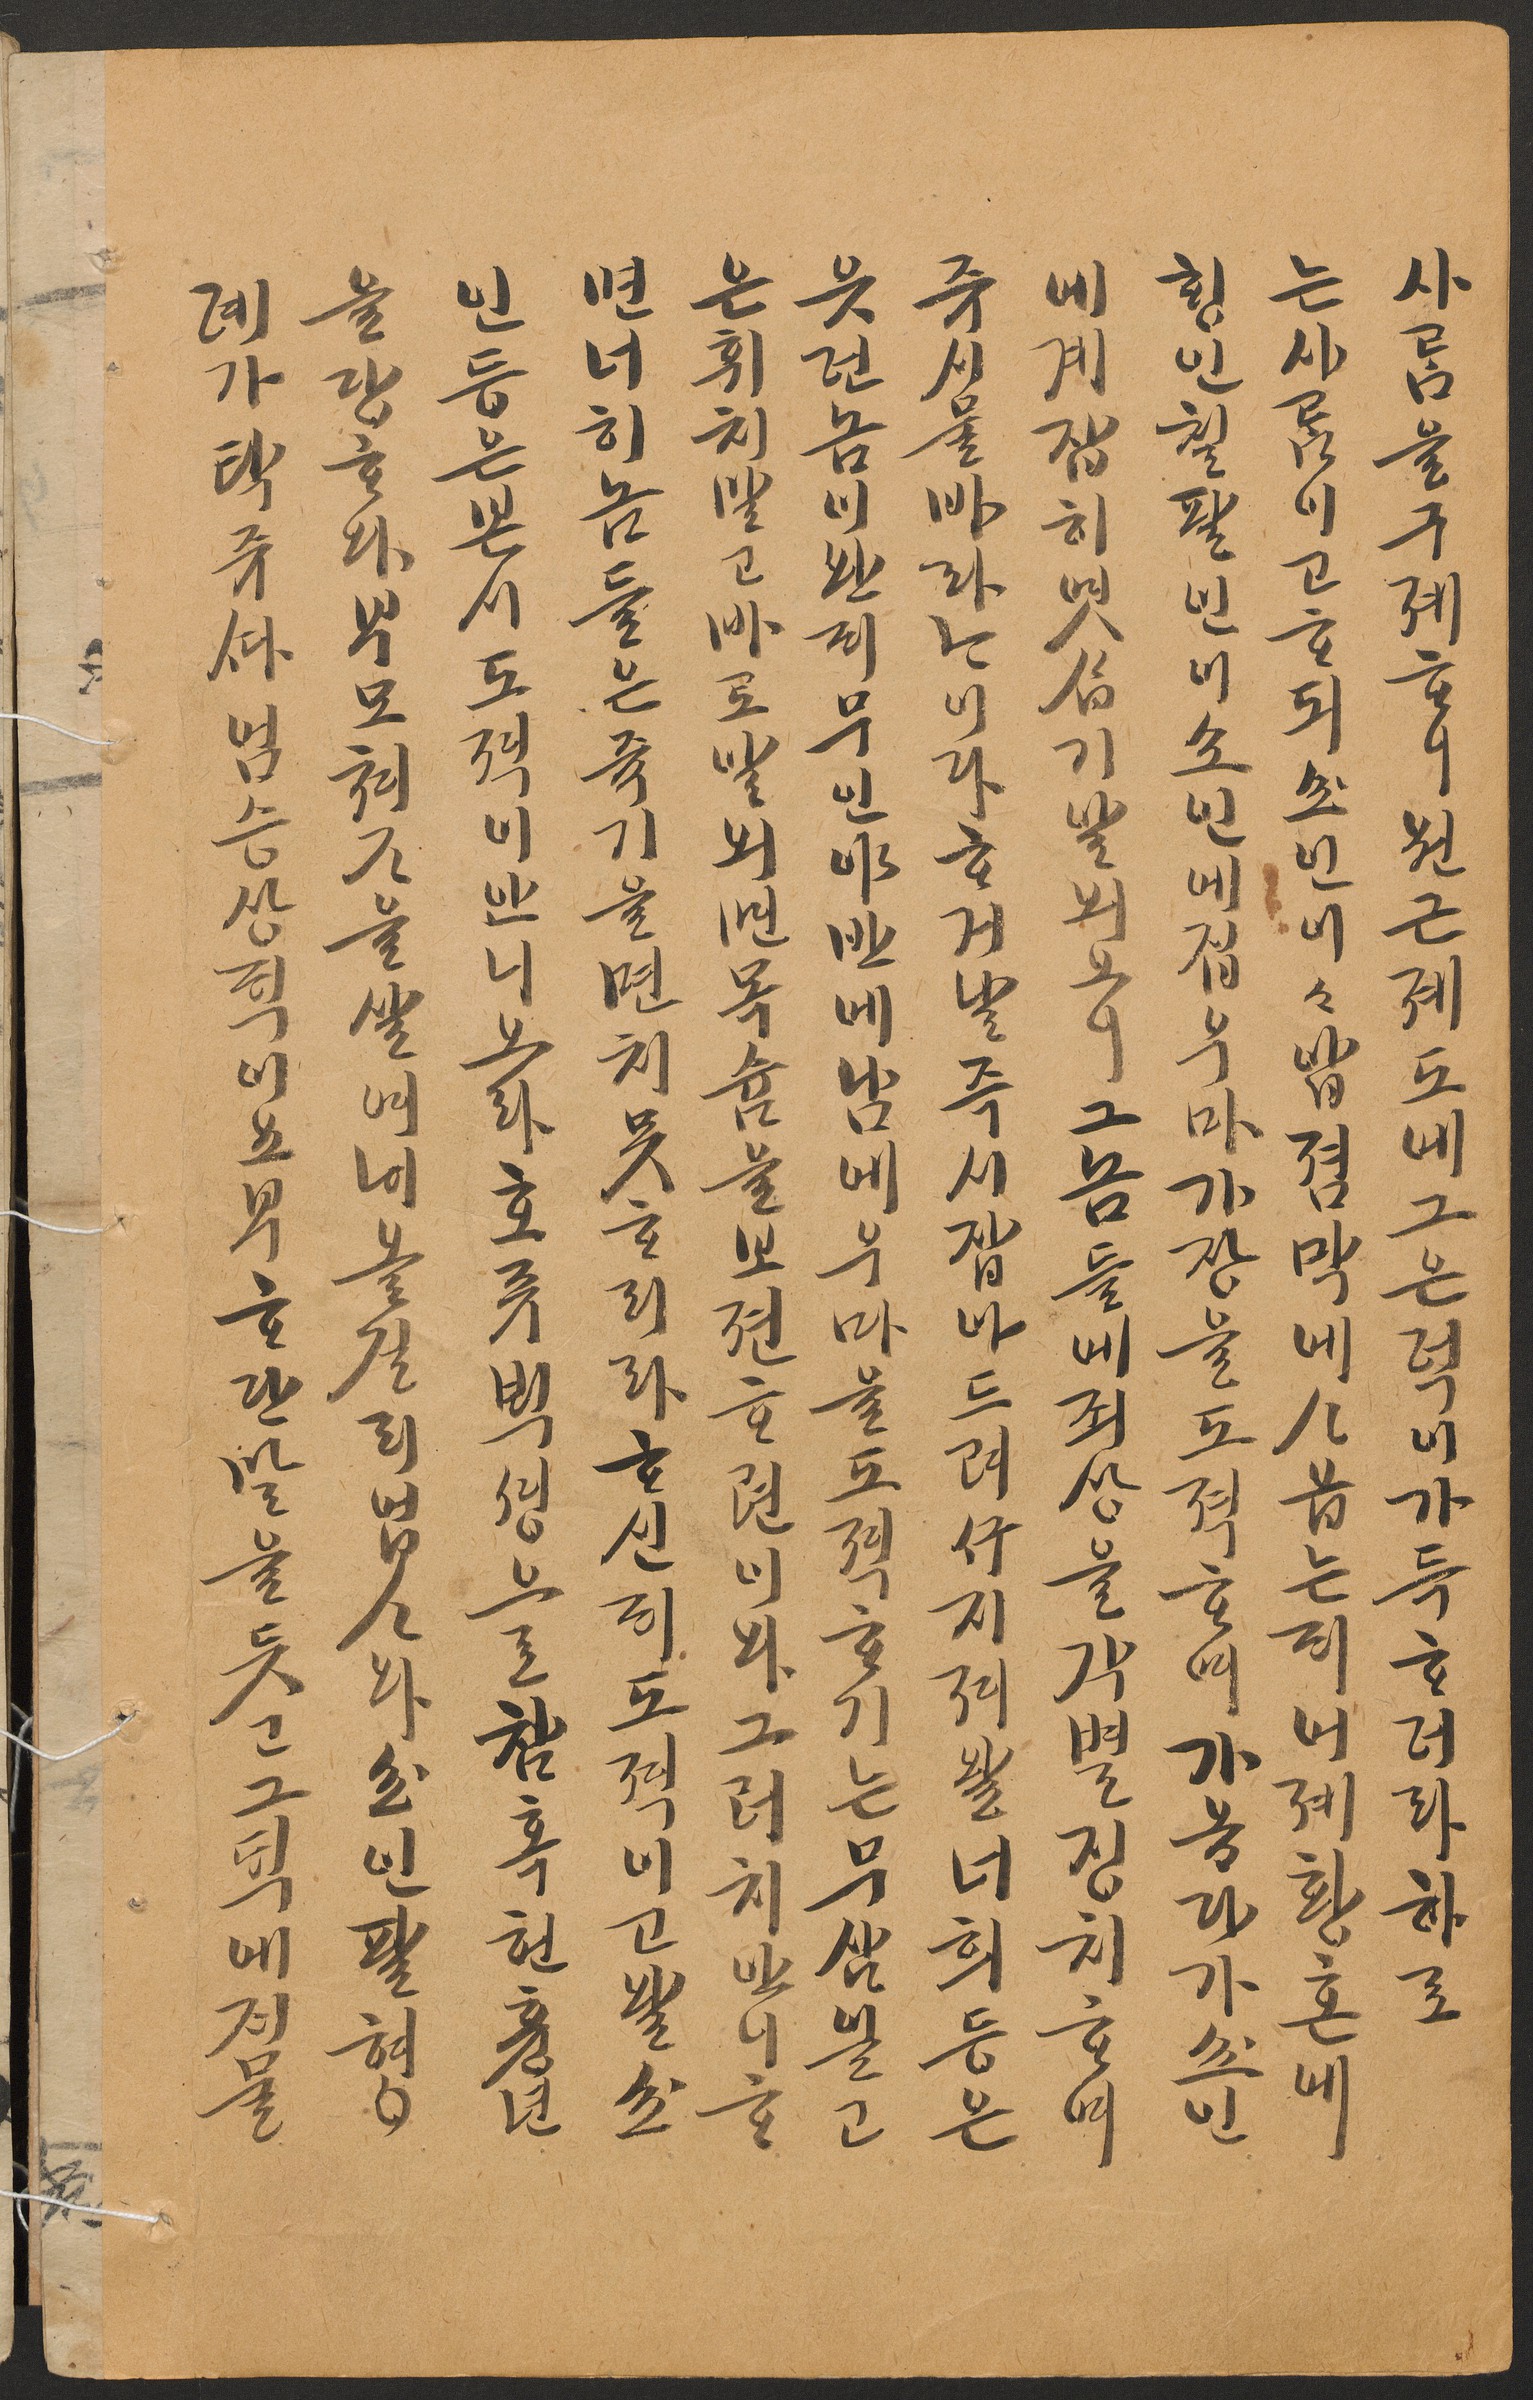 사ᄅᆞᆷ을구졔ᄒᆞ이원근졔도에그은덕이가득ᄒᆞ더라하로
는사ᄅᆞᆷ이고ᄒᆞ되쇼인이〻압졈막에ᄉᆞᆸ는지어졔황혼에
ᄒᆡᆼ인칠팔인이소인에집우마가장을도젹ᄒᆞ여가옵다가쇼인
에게잡히엿ᄉᆞᆸ기알외오이그놈들에죄상을각별징치ᄒᆞ여
쥬시물바라ᄂᆞ이다ᄒᆞ거날즉시잡아드려ᄭᅮ지져왈너희등은
웃던놈이완ᄃᆡ무인야반에남에우마을도젹ᄒᆞ기는무삼일고
은휘치말고바로알외면목슘을보젼ᄒᆞ련이와그러치안니ᄒᆞ
면너히놈들은죽기을면치못ᄒᆞ리라ᄒᆞ신ᄃᆡ도젹이고왈쇼
인등은본시도젹이안니오라호쥬ᄇᆡᆨ셩으로참혹헌흉년
을당ᄒᆞ와부모쳐ᄌᆞ을살여ᄂᆡ올길리업ᄉᆞ와쇼인팔형
뎨가ᄐᆡᆨ쥬ᄯᅡ범승상ᄃᆡᆨ이요부ᄒᆞ단말을듯고그ᄃᆡᆨ에ᄌᆡ물